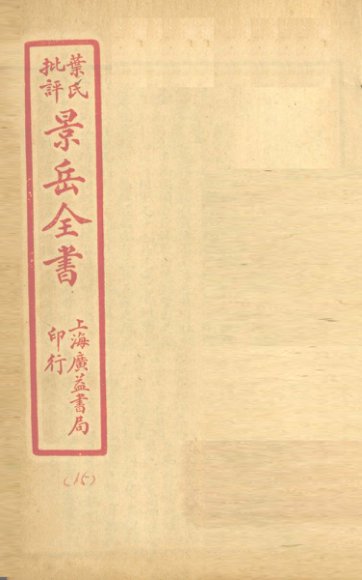 葉氏
批評
景岳全書
上海廣益書局
印行
(15)